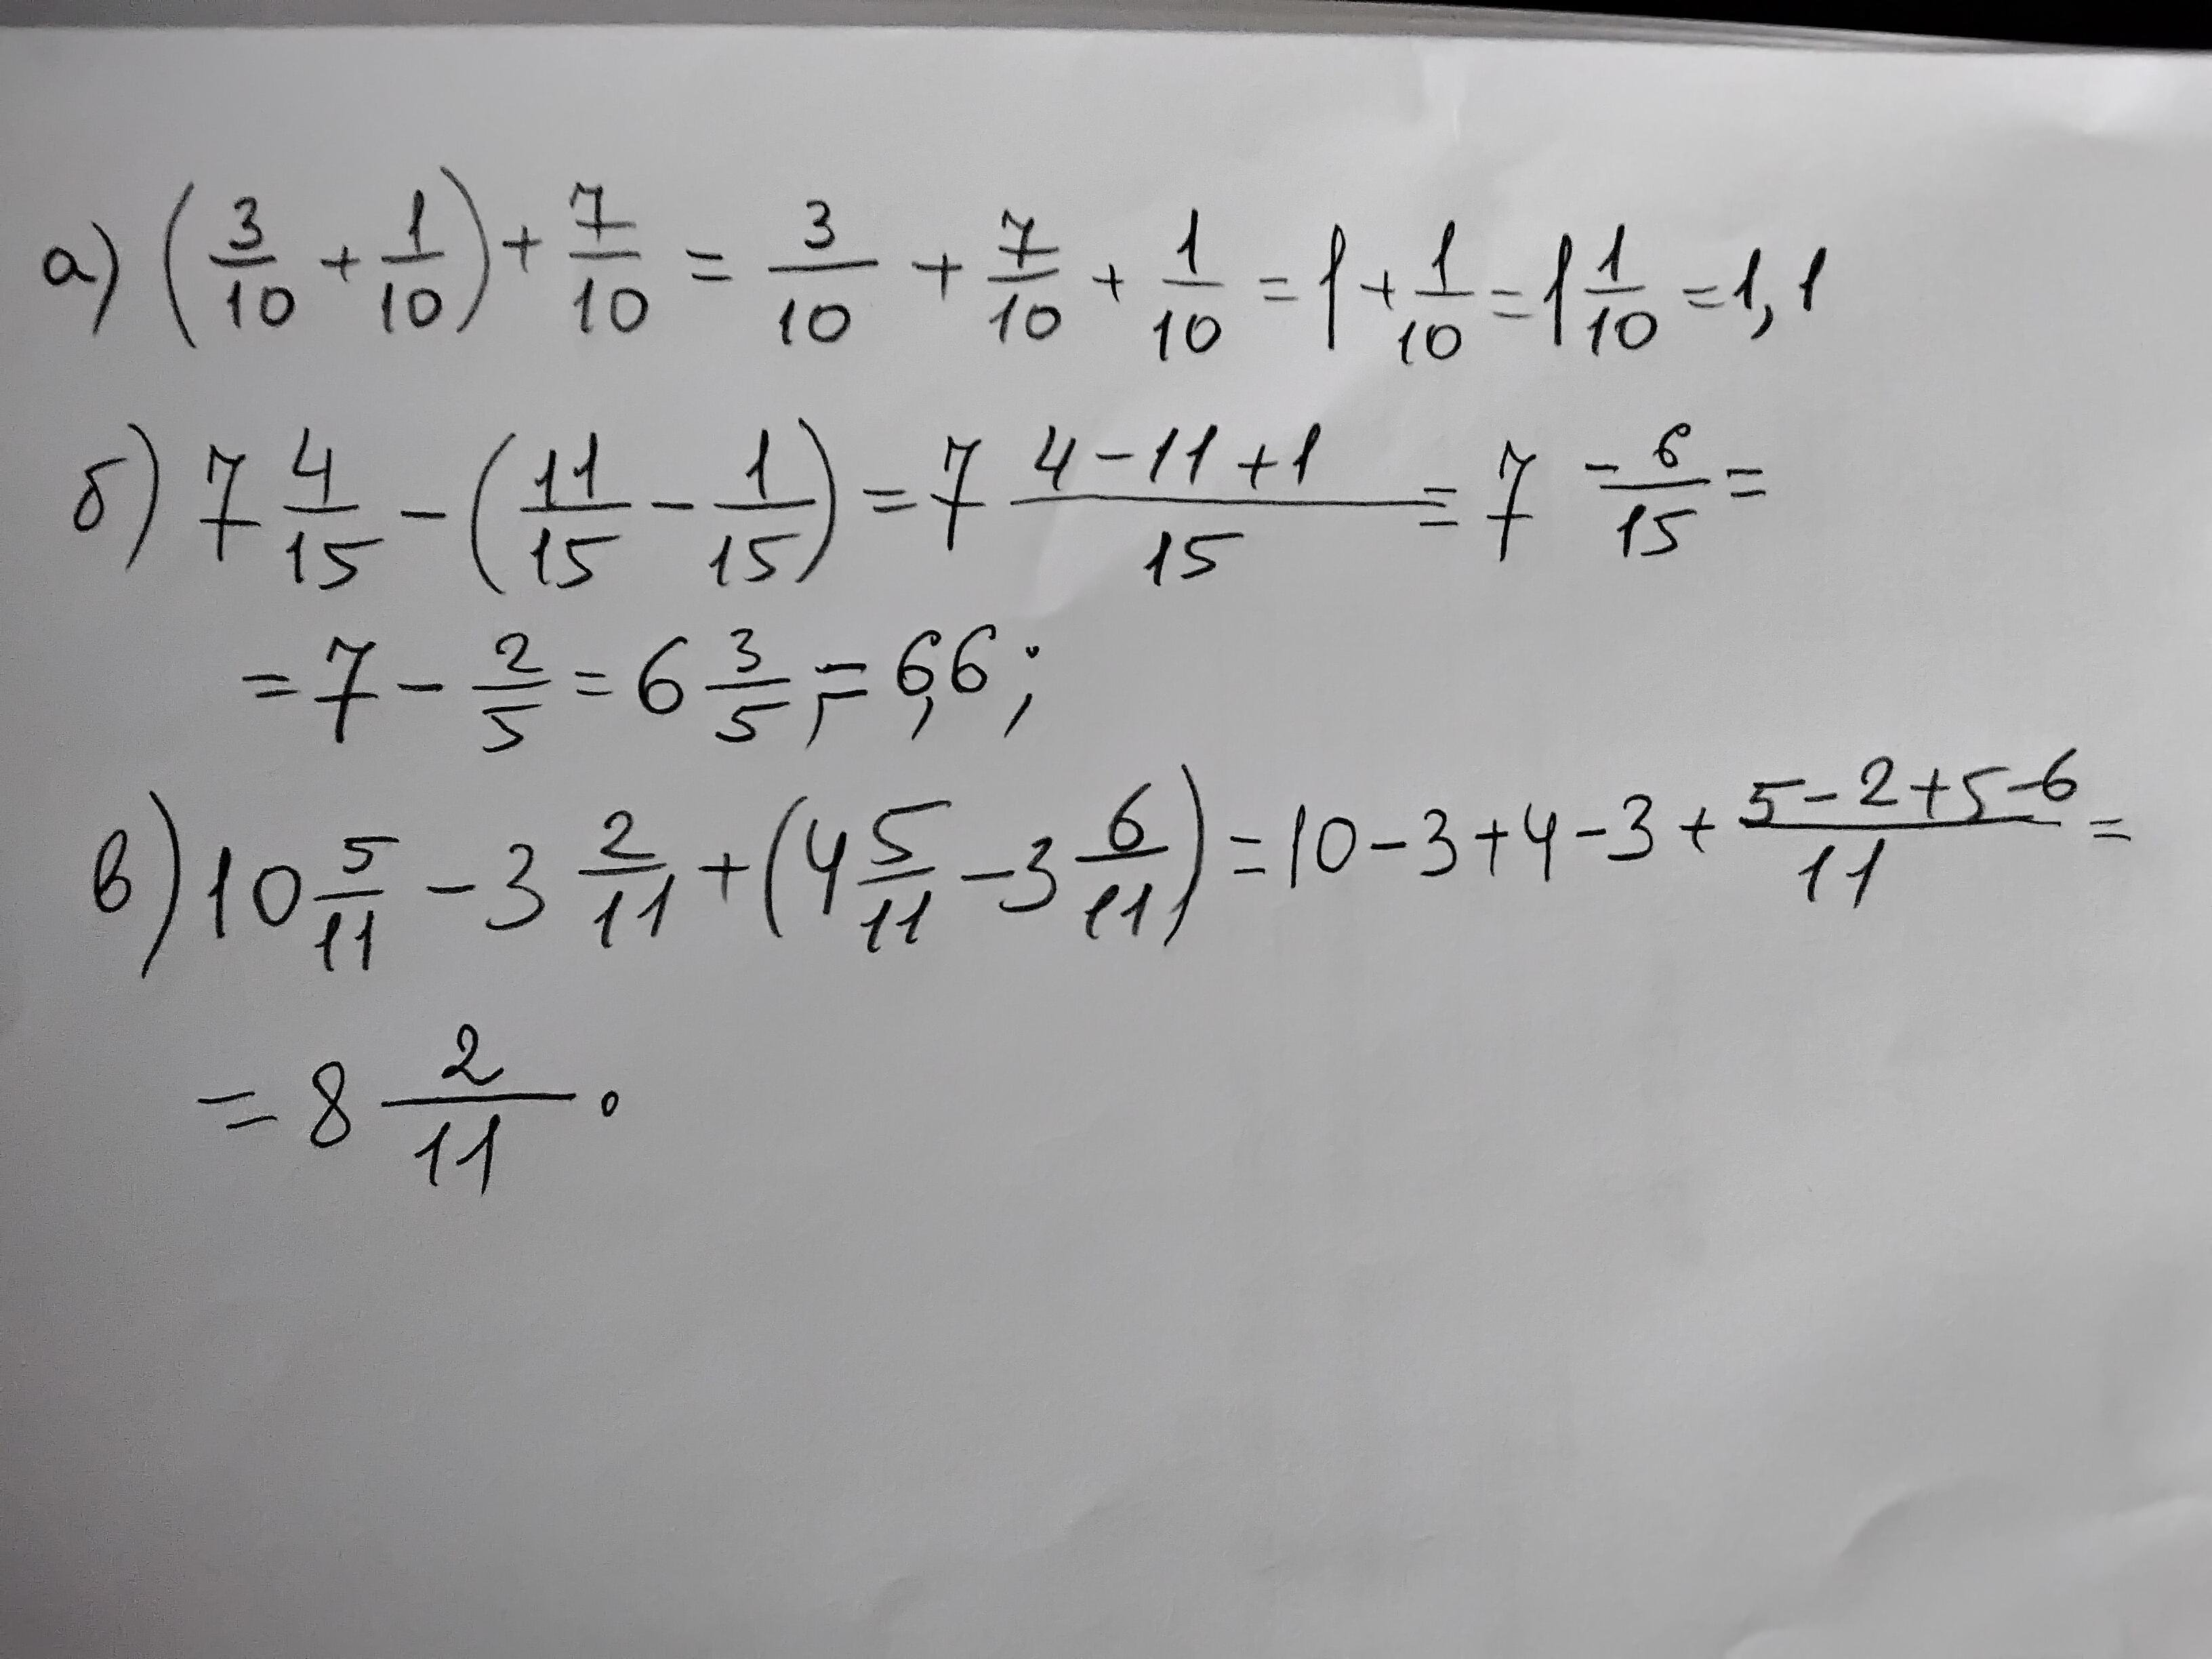 а) (3/10 + 1/10) + 7/10 = 3/10 + 7/10 + 1/10 = 1 + 1/10 = 1 1/10 = 1,1
б) 7 4/15 - (11/15 - 1/15) = 7 (4-11+1)/15 = 7 -6/15 =
= 7 - 2/5 = 6 3/5; = 6,6;
в) 10 5/11 - 3 2/11 + (4 5/11 - 3 6/11) = 10 - 3 + 4 - 3 + (5-2+5-6)/11 =
= 8 2/11.